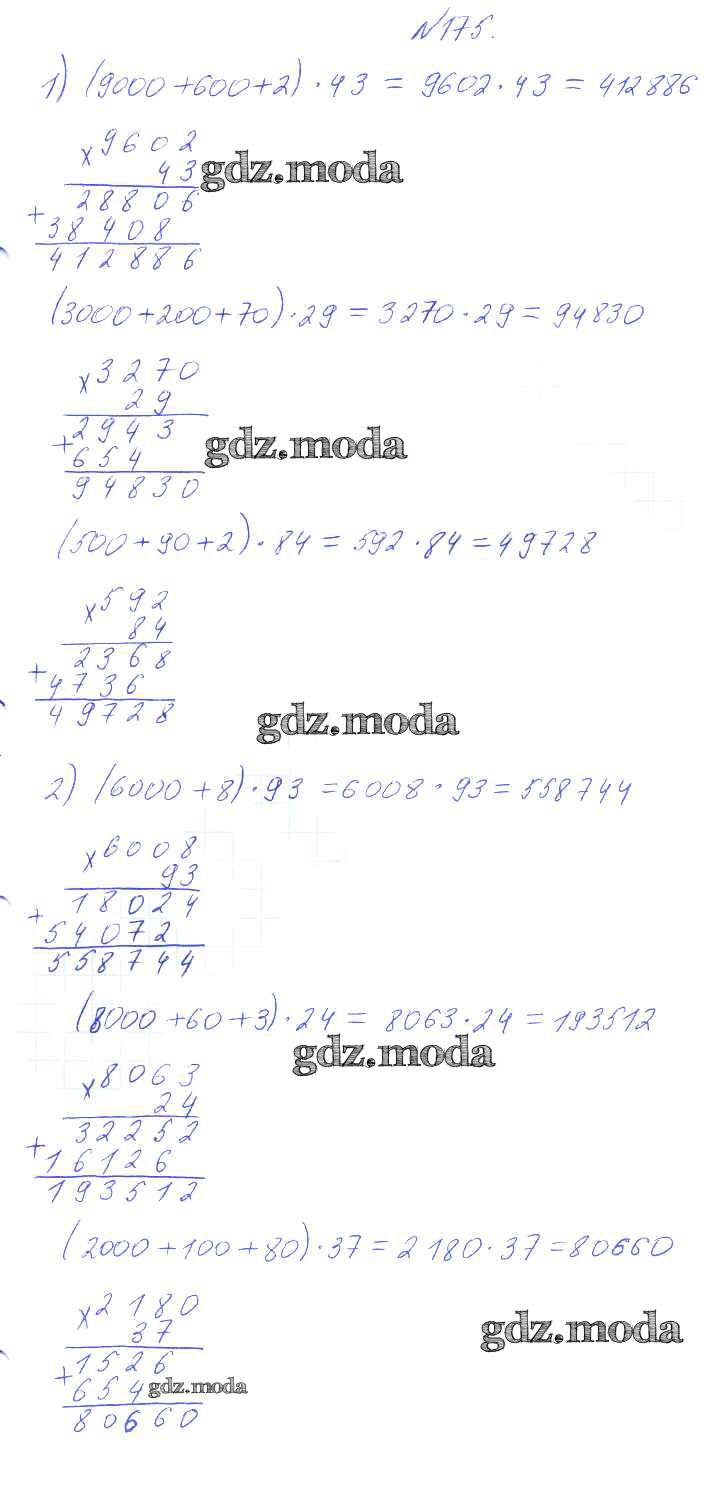 №175.
1) (9000+600+2)·43 = 9602·43 = 412886
x 9602
43
gdz.moda
28806
+
38408
412886
(3000+200+70)·29 = 3270·29 = 94830
x 3270
29
2943
+
654
gdz.moda
94830
(500+90+2)·84 = 592·84 = 49728
x 592
84
2368
+
4736
49728
gdz.moda
2) (6000+8)·93 = 6008·93 = 558744
x 6008
93
18024
+
54072
558744
(8000+60+3)·24 = 8063·24 = 193512
gdz.moda
x 8063
24
32252
+
16126
193512
(2000+100+80)·37 = 2180·37 = 80660
x 2180
37
gdz.moda
1526
+
654
gdz.moda
80660